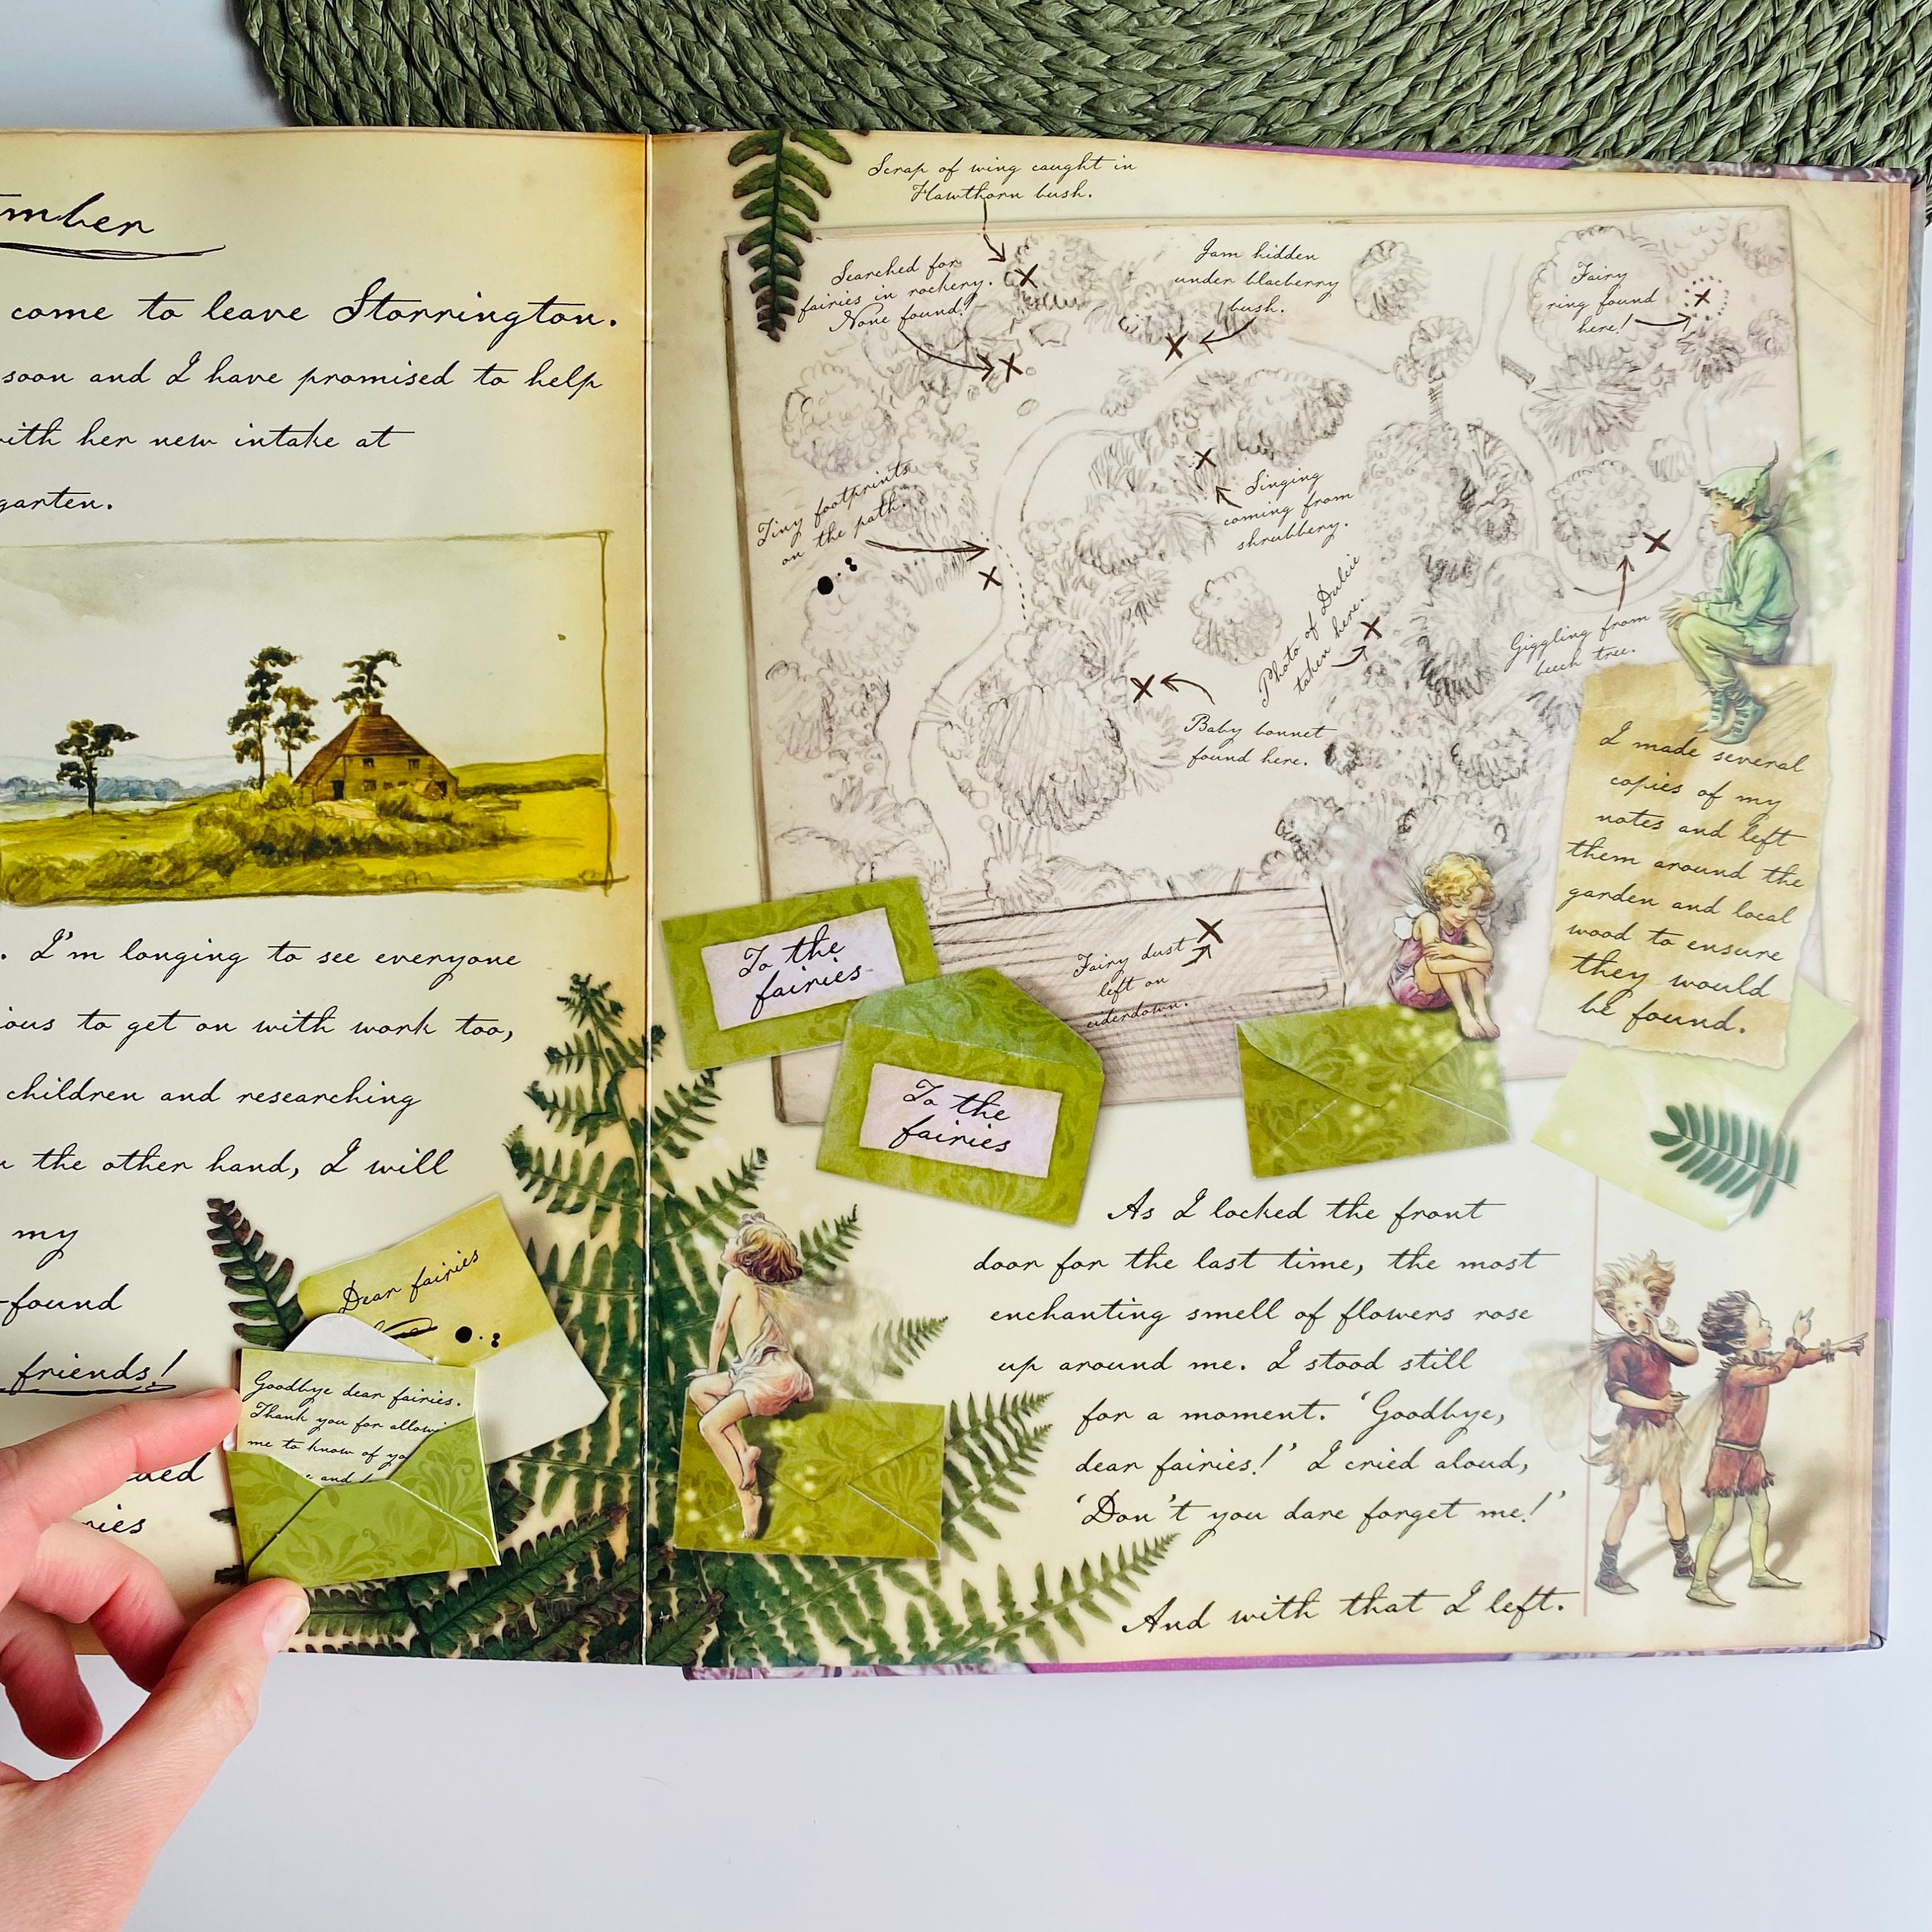 mber
come to leave Storrington.
soon and I have promised to help
with her new intake at
garten.
. I'm longing to see everyone
ious to get on with work too,
children and researching
the other hand, I will
my
-found
friends!
Dear fairies
Goodbye dear fairies.
Thank you for allowi
me to know of yo
and
ued
ries
Scrap of wing caught in
Hawthorn bush.
Searched for
fairies in rockery.
None found!
Jam hidden
under blackberry
bush.
Fairy
ring found
here!
Tiny footprints
on the path.
Singing
coming from
shrubbery.
Photo of Dulcie
taken here.
Giggling from
beech tree.
Baby bonnet
found here.
Fairy dust
left on
eiderdown.
I made several
copies of my
notes and left
them around the
garden and local
wood to ensure
they would
be found.
To the
fairies
To the
fairies
As I locked the front
door for the last time, the most
enchanting smell of flowers rose
up around me. I stood still
for a moment. 'Goodbye,
dear fairies!' I cried aloud,
'Don't you dare forget me!'
And with that I left.